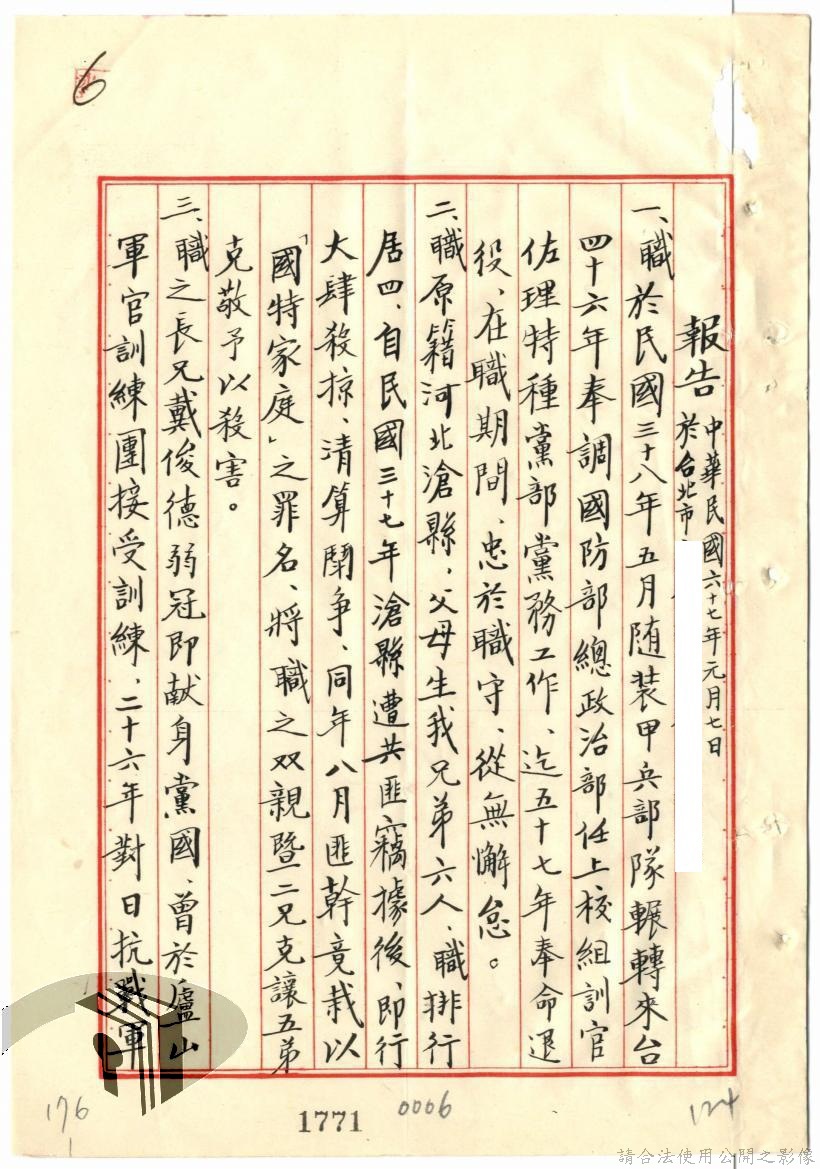 6
報告
中華民國六十七年元月七日
於台北市
一、職於民國三十八年五月随裝甲兵部隊輾轉來台
四十六年奉調國防部總政治部任上校組訓官
佐理特種黨部黨務工作、迄五十七年奉命退
役、在職期間、忠於職守、從無懈怠。
二、職原籍河北滄縣、父母生我兄弟六人、職排行
居四、自民國三十七年滄縣遭共匪竊據後、即行
大肆殺掠、清算鬪争、同年八月匪幹竟栽以
「國特家庭」之罪名、將職之双親暨二兄克讓五弟
克敬予以殺害。
三、職之長兄戴俊德弱冠即献身黨國、曾於廬山
軍官訓練團接受訓練、二十六年對日抗戰軍
176
1
1771
0006
124
請合法使用公開之影像